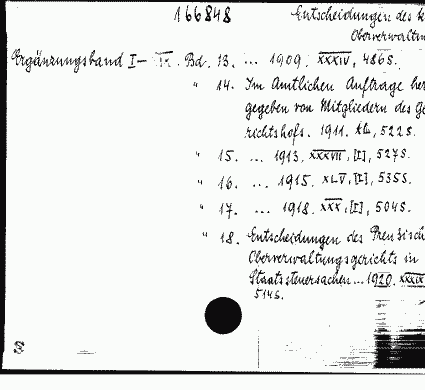 166848 Entscheidungen des k
Oberverwaltun
Ergänzungsband I— . Bd. 13. ... 1909. XXXIV, 486S.
" 14. Im Amtlichen Auftrage her
gegeben von Mitgliedern des Ge
richtshofs. 1911. 522S.
" 15. ... 1913. XXXVII, [I], 527S.
" 16. ... 1915. XLV, [I], 535S.
" 17. ... 1918. XXX, [I], 504S.
" 18. Entscheidungen des Preußisch
Oberverwaltungsgerichts in
Staatssteuersachen... 1920. XXXIX
514S.
S